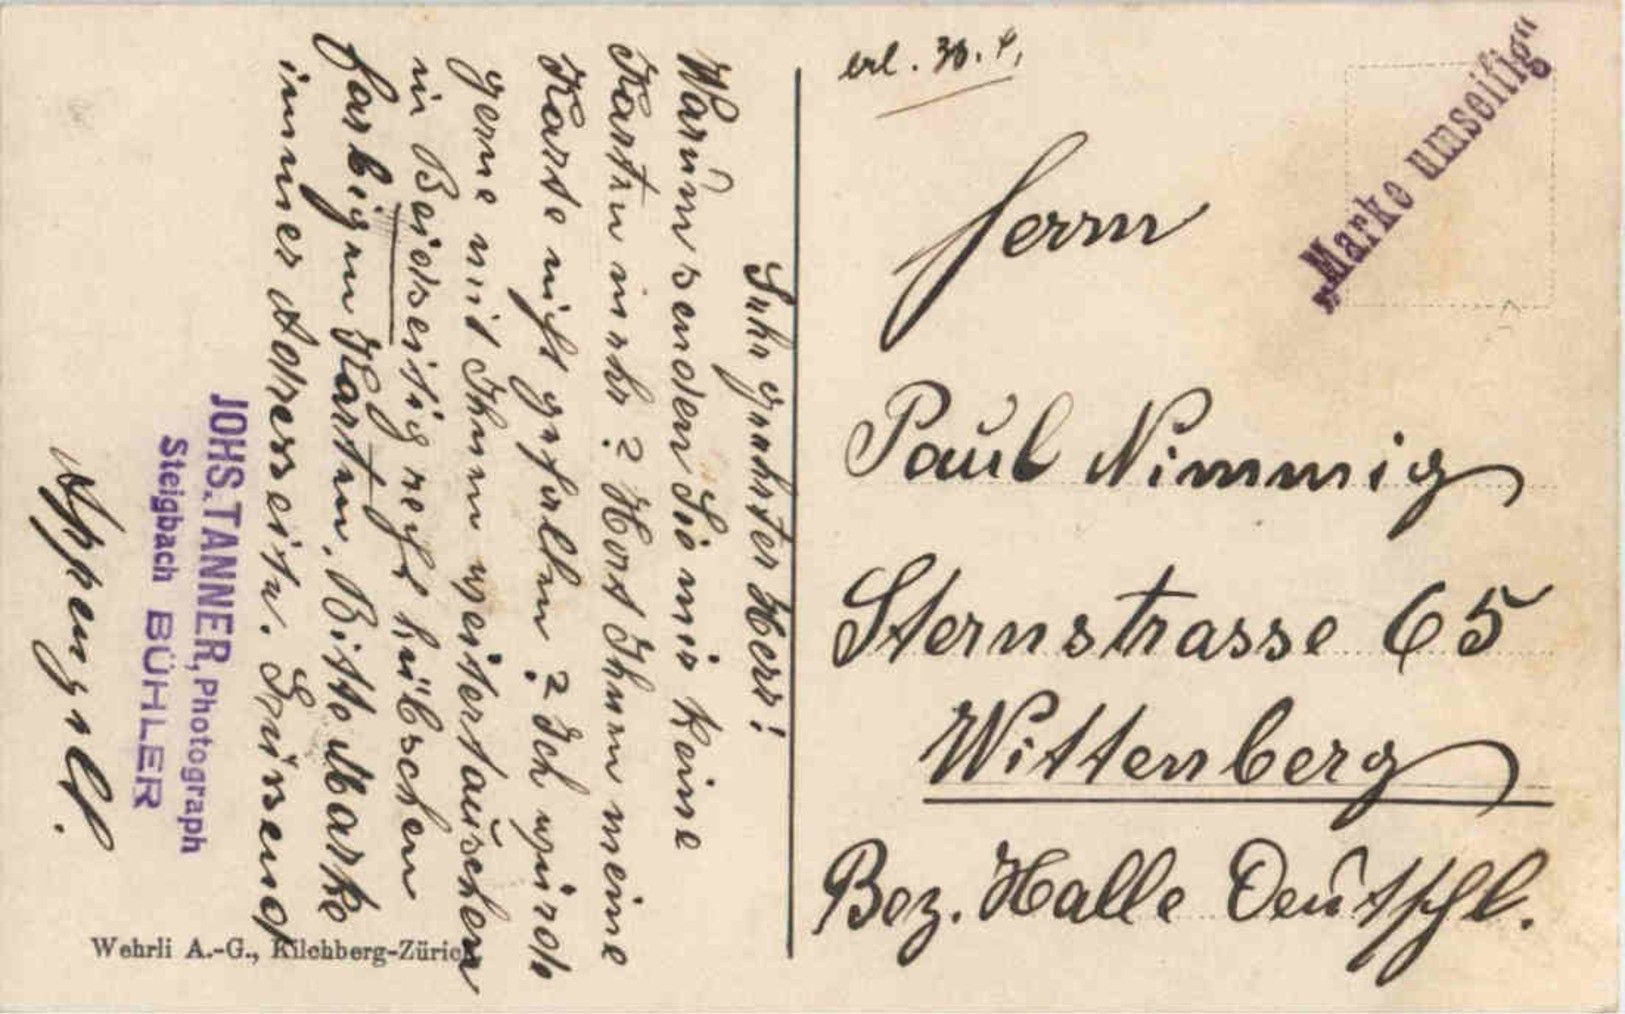 erl. 30. 4.
„Marke umseitig“
Herrn
Paul Nimmig
Sternstrasse 65
Wittenberg
Bez. Halle Deutschl.
Sehr geehrter Herr!
Warum senden Sie mir keine
Karten mehr? Hat Ihnen meine
Karte nicht gefallen? Ich würde
gerne mit Ihnen weitertauschen
in Beidseitig recht hübschen
farbigen Karten. Bitte Marke
immer Adressseite. Grüssend
JOHS. TANNER, Photograph
Steigbach BÜHLER
Wehrli A.-G., Kilchberg-Zürich